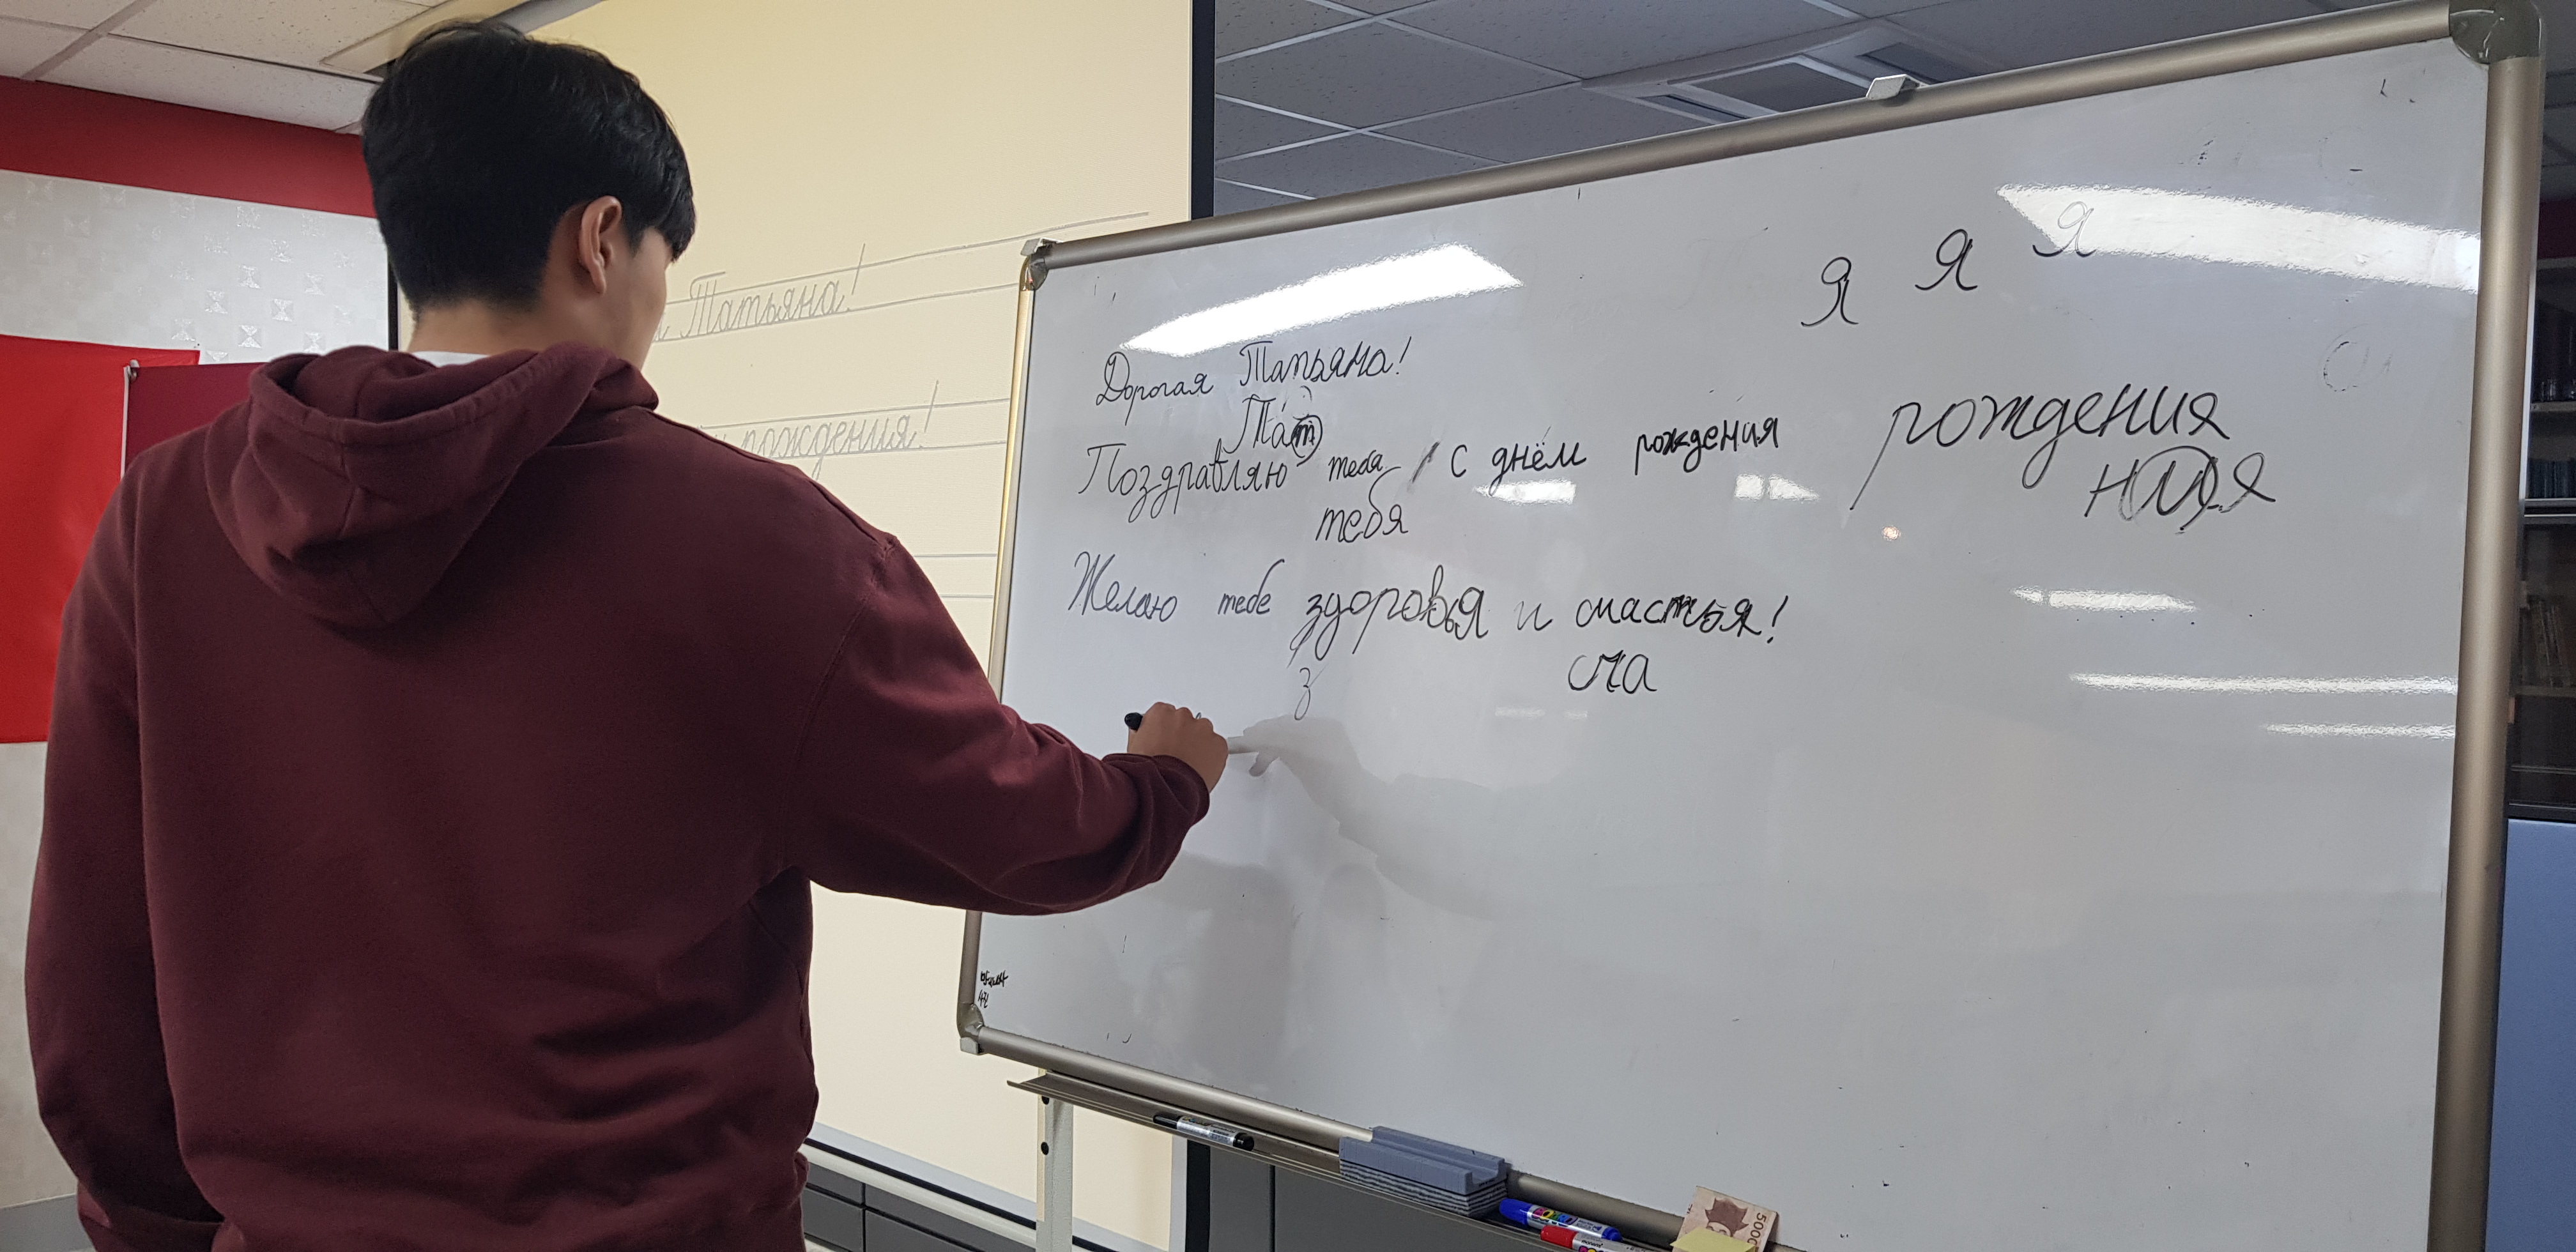 Татьяна!
рождения!
я я я
Дорогая Татьяна!
Тат
Поздравляю тебя с днём рождения
рождения
ния
тебя
Желаю тебе здоровья и счастья!
з
сча
5000